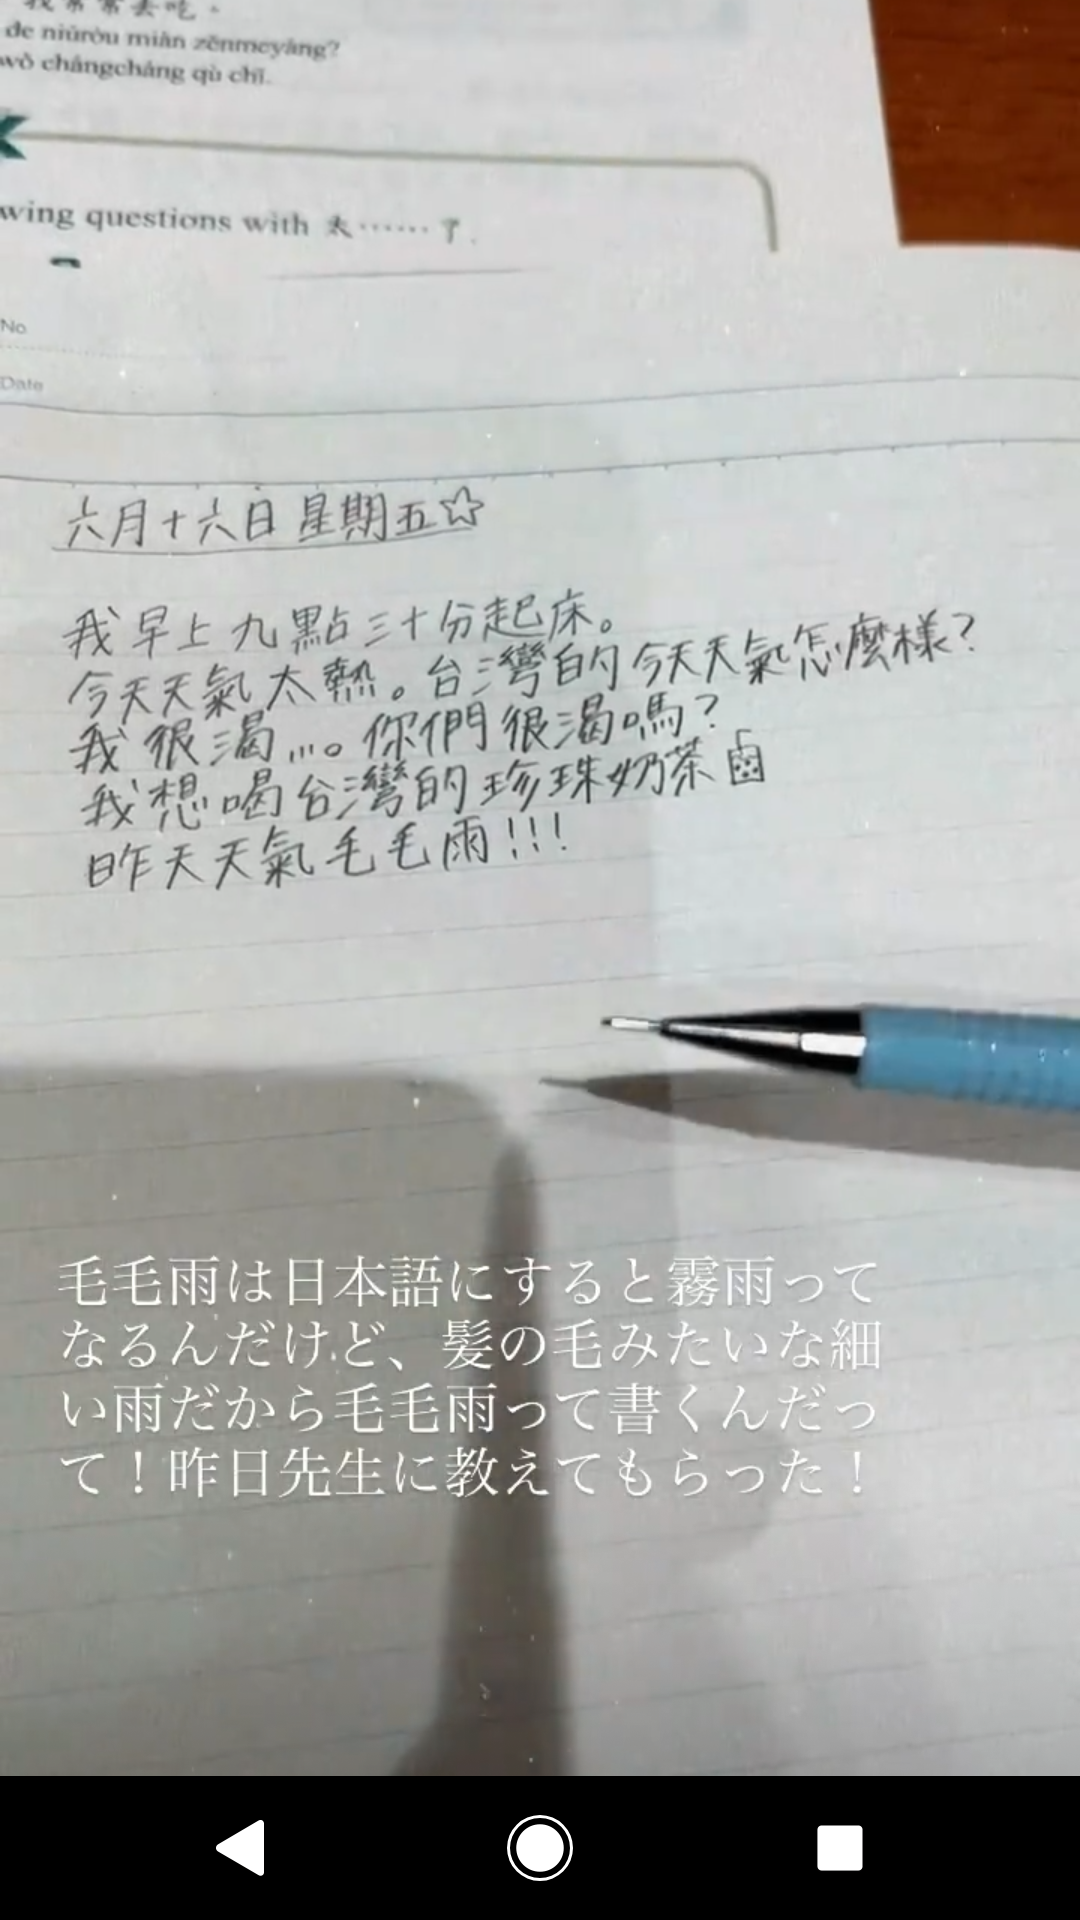 我常常去吃。
de niúròu miàn zěnmeyàng?
wǒ chángcháng qù chī.
wing questions with 太……了.
No.
Date
六月十六日 星期五☆
我早上九點三十分起床。
今天天氣太熱。台灣的今天天氣怎麼樣?
我很渴...。你們很渴嗎?
我想喝台灣的珍珠奶茶
昨天天氣毛毛雨!!!
毛毛雨は日本語にすると霧雨って
なるんだけど、髪の毛みたいな細
い雨だから毛毛雨って書くんだっ
て！昨日先生に教えてもらった！